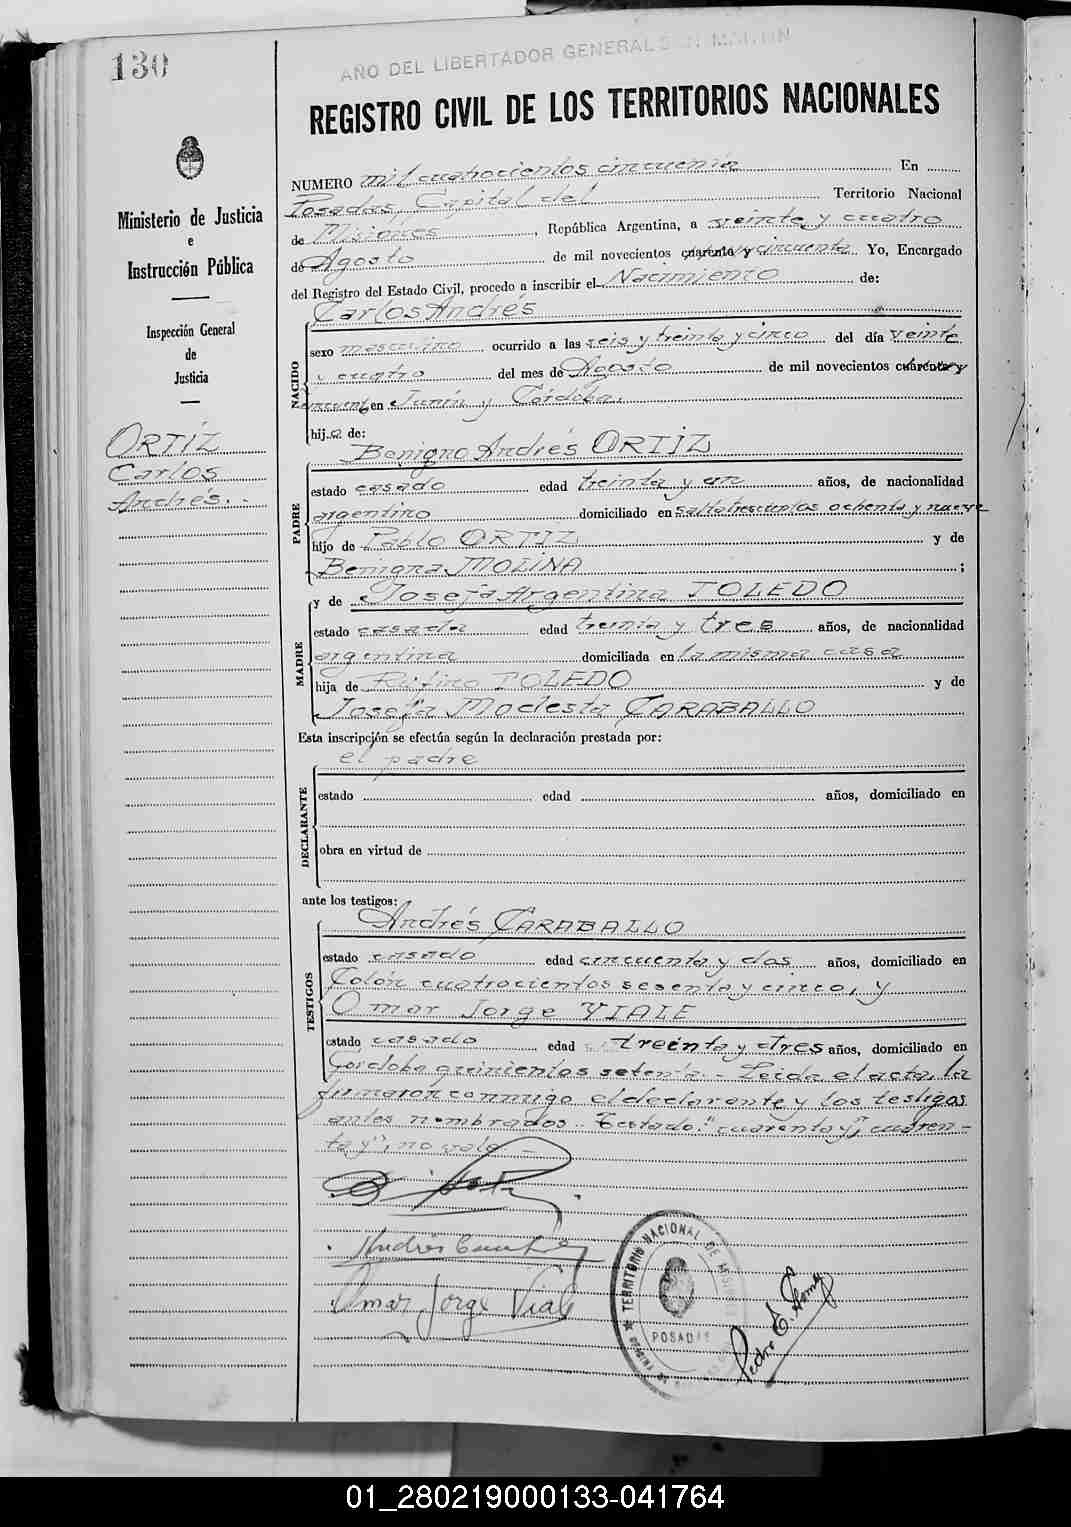 130
AÑO DEL LIBERTADOR GENERAL SAN MARTIN
REGISTRO CIVIL DE LOS TERRITORIOS NACIONALES
Ministerio de Justicia
e
Instrucción Pública
Inspección General
de
Justicia
ORTÍZ
Carlos
Andrés.
NUMERO mil cuatrocientos cincuenta En
Posadas, Capital del Territorio Nacional
de Misiones, República Argentina, a veinte y cuatro
de Agosto de mil novecientos cuarenta y cincuenta Yo, Encargado
del Registro del Estado Civil, procedo a inscribir el Nacimiento de:
Carlos Andrés
NACIDO
sexo masculino ocurrido a las seis y treinta y cinco del día veinte
y cuatro del mes de Agosto de mil novecientos cuarenta y
cincuenta en Junín y Córdoba.
hijo de:
Benigno Andrés ORTÍZ
PADRE
estado casado edad treinta y un años, de nacionalidad
argentino domiciliado en Salta trescientos ochenta y nueve
hijo de Pablo ORTIZ y de
Benigna MOLINA ;
y de Josefa Argentina TOLEDO
MADRE
estado casada edad treinta y tres años, de nacionalidad
argentina domiciliada en la misma casa
hija de Rufino TOLEDO y de
Josefa Modesta CARABALLO
Esta inscripción se efectúa según la declaración prestada por:
el padre
DECLARANTE
estado edad años, domiciliado en
obra en virtud de
ante los testigos:
Andrés CARABALLO
TESTIGOS
estado casado edad cincuenta y dos años, domiciliado en
Colón cuatrocientos sesenta y cinco, y
Omar Jorge VIALE
estado casado edad treinta y tres años, domiciliado en
Córdoba quinientos setenta.- Leida el acta, la
firmaron conmigo el declarante y los testigos
antes nombrados.- Testado: "cuarenta y", "cuaren-
ta y", no vale.-
Andrés
Omar Jorge Viale
TERRITORIO NACIONAL DE MISIONES
POSADAS
Pedro E.
01_280219000133-041764